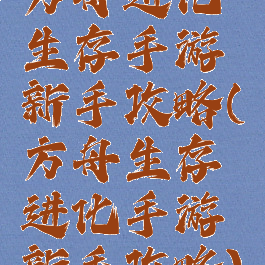 方舟进化
生存手游
新手攻略(
方舟生存
进化手游
新手攻略)